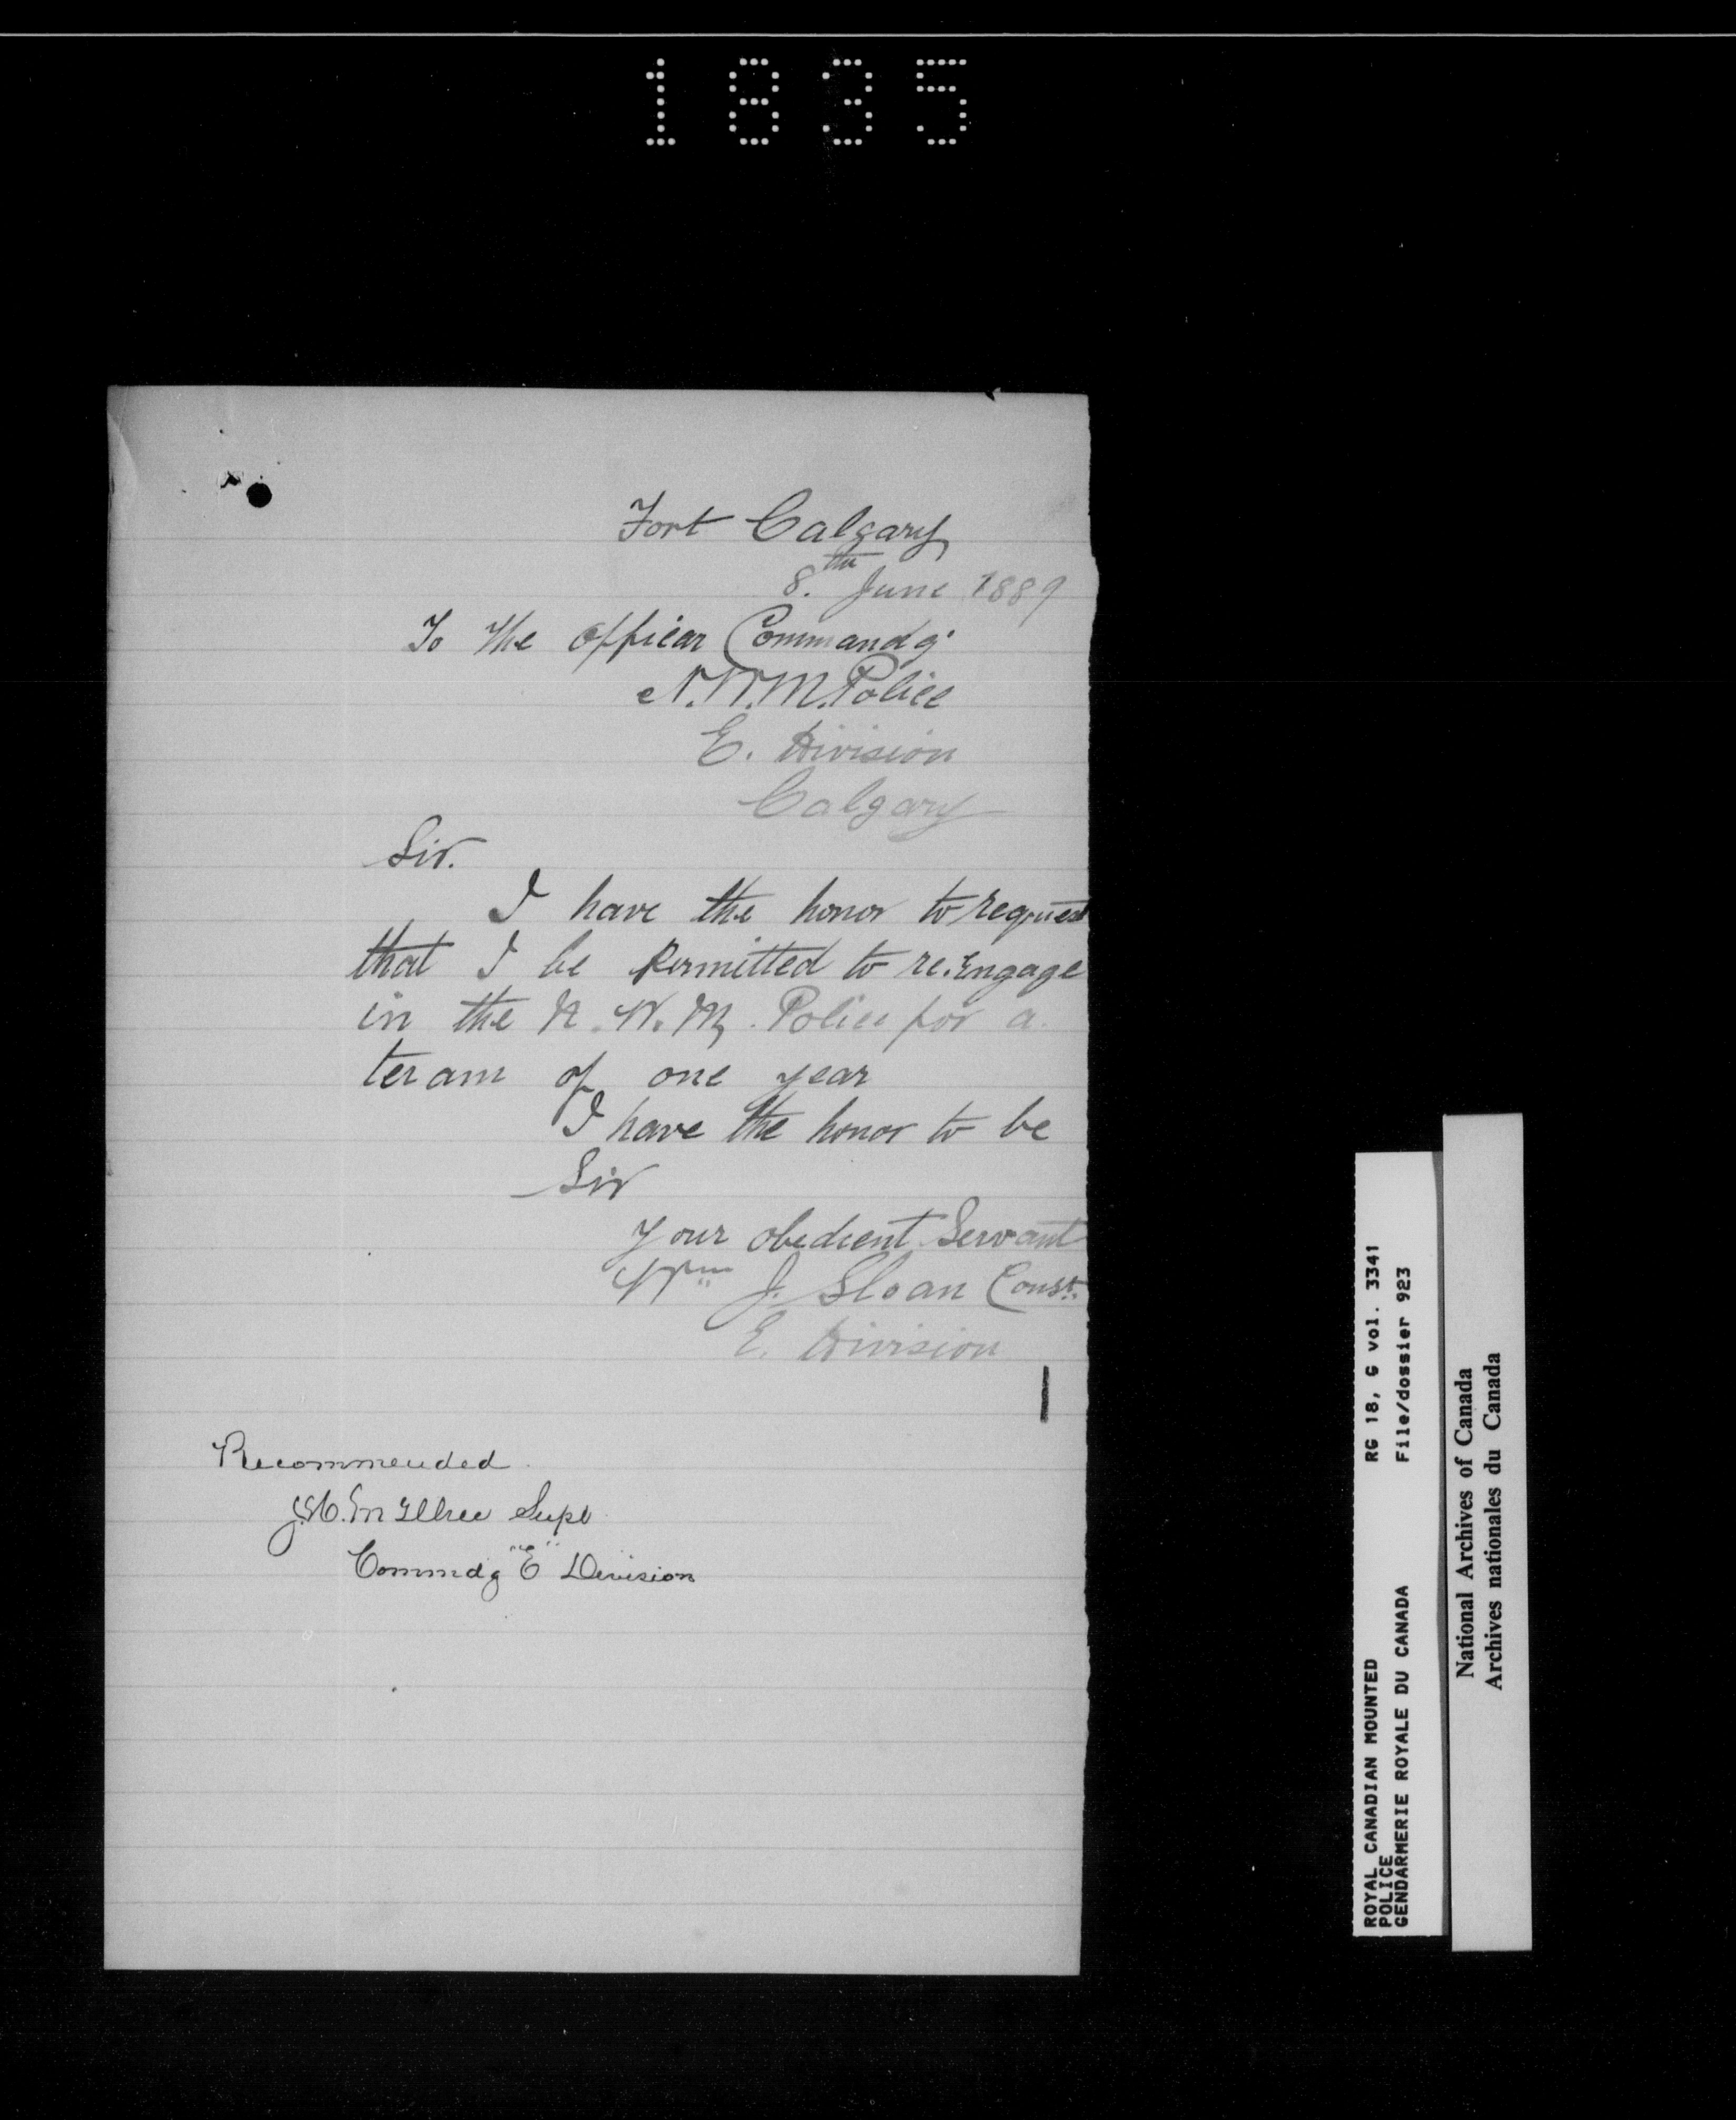 1835
Fort Calgary
8.th June 1889
To the Officar Commandg.
N.W.M. Police
E. Division
Calgary
Sir.
I have the honor to request
that I be Permitted to re.Engage
in the N.W.M. Police for a
teram of one year
I have the honor to be
Sir
Your obedient Servant
Wm J. Sloan Const.
E. Division
Recommended.
J.H. McIllree Supt
Commdg "E" Division
ROYAL CANADIAN MOUNTED RG 18, G vol. 3341
POLICE File/dossier 923
GENDARMERIE ROYALE DU CANADA
National Archives of Canada
Archives nationales du Canada